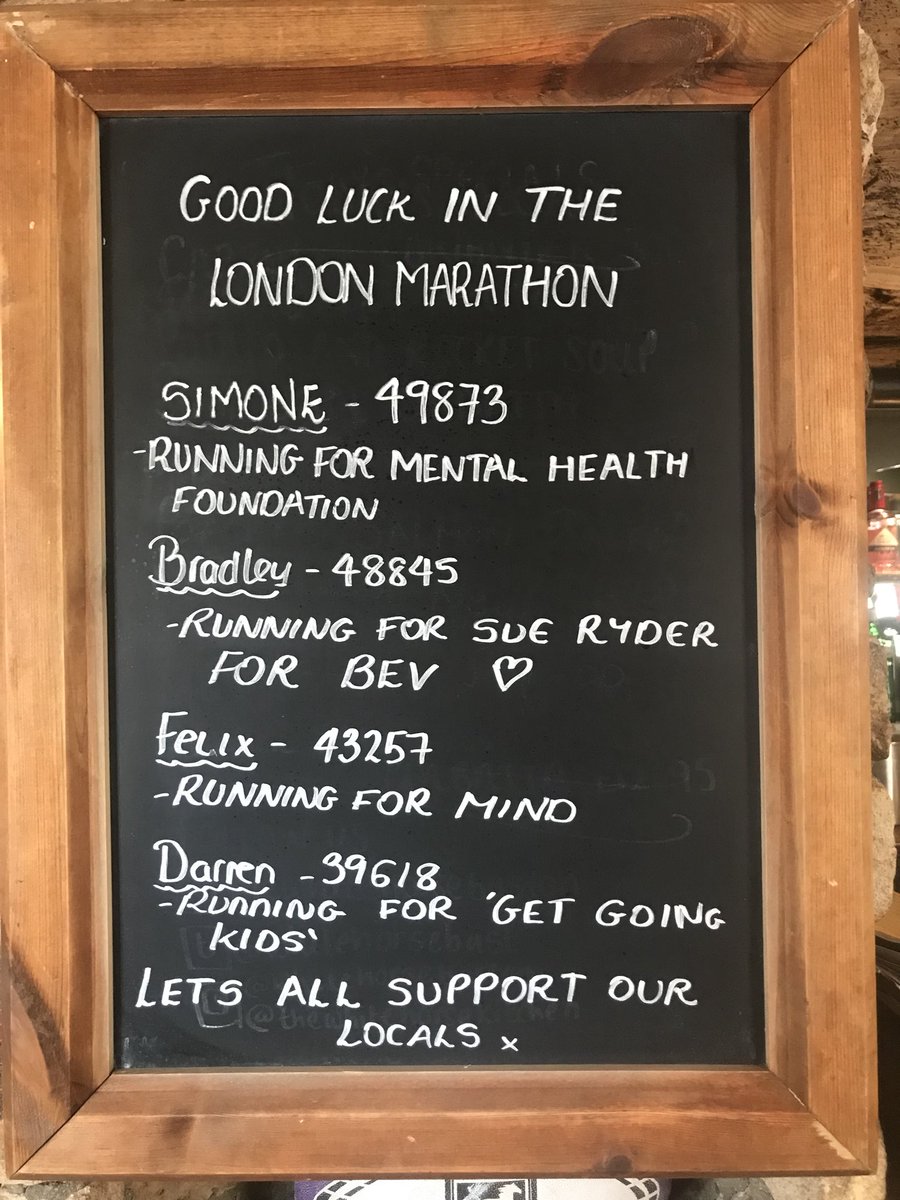 GOOD LUCK IN THE
LONDON MARATHON
SIMONE - 49873
-RUNNING FOR MENTAL HEALTH
FOUNDATION
Bradley - 48845
-RUNNING FOR SUE RYDER
FOR BEV ♡
FELIX - 43257
-RUNNING FOR MIND
Darren - 39618
-RUNNING FOR 'GET GOING
KIDS'
LETS ALL SUPPORT OUR
LOCALS x